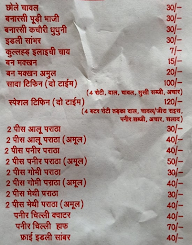 छोले चावल 30/-
बनारसी पूड़ी भाजी 30/-
बनारसी कचौरी घुघुनी 30/-
इडली सांभर 30/-
कुल्लहड़ इलाइची चाय 7/-
बन मक्खन 15/-
बन मक्खन अमूल 20/-
सादा टिफिन (वो टाईम) 100/-
(4 रोटी, दाल, चावल, सुखी सब्जी, अचार)
स्पेशल टिफिन (वो टाईम) 120/-
(4 बटर रोटी तड़का दाल, चावल/जीरा राइस,
पनीर सब्जी, अचार, सलाद)
2 पीस आलू पराठा 30/-
2 पीस आलू पराठा (अमूल) 40/-
2 पीस पनीर पराठा 40/-
2 पीस पनीर पराठा (अमूल) 50/-
2 पीस गोभी पराठा 30/-
2 पीस गोभी पराठा (अमूल) 40/-
2 पीस मेथी पराठा 30/-
2 पीस मेथी पराठा (अमूल) 40/-
पनीर चिल्ली क्वाटर 40/-
पनीर चिल्ली हाफ 70/-
फ्राई इडली सांबर 40/-